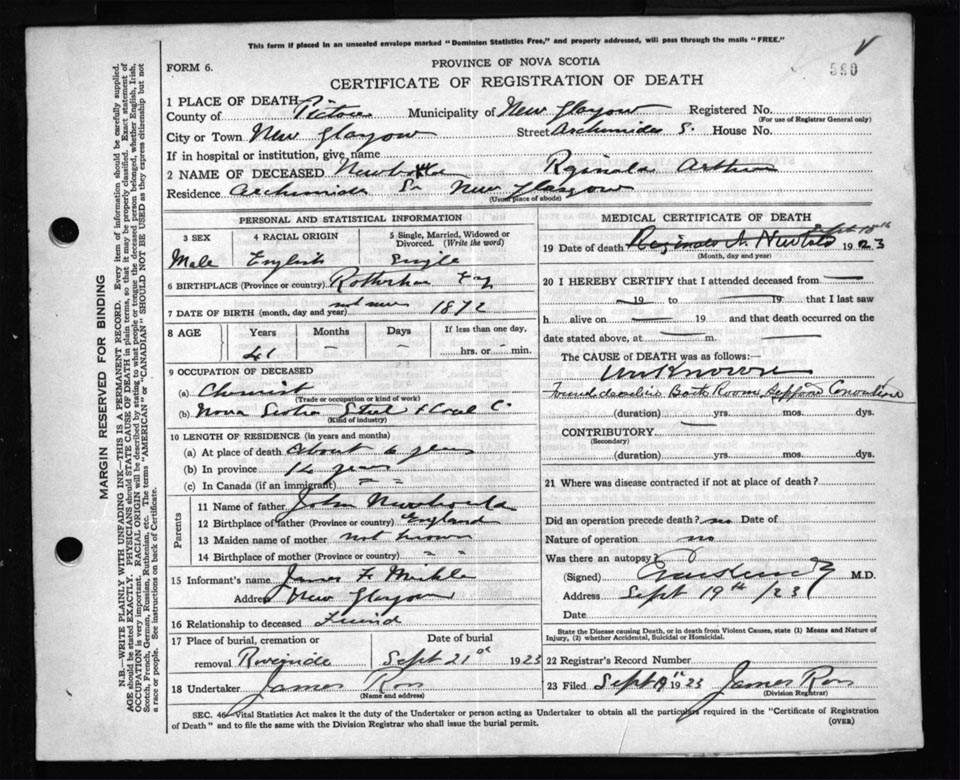 This form if placed in an unsealed envelope marked "Dominion Statistics Free," and properly addressed, will pass through the mails "FREE."
590
FORM 6.
PROVINCE OF NOVA SCOTIA
CERTIFICATE OF REGISTRATION OF DEATH
MARGIN RESERVED FOR BINDING
N.B.—WRITE PLAINLY WITH UNFADING INK—THIS IS A PERMANENT RECORD. Every item of information should be carefully supplied.
AGE should be stated EXACTLY. PHYSICIANS should STATE CAUSE OF DEATH in plain terms, so that it may be properly classified. Exact statement of
OCCUPATION is very important. RACIAL ORIGIN will be described by stating to what people or tongue the deceased person belonged, whether English, Irish,
Scotch, French, German, Russian, Ruthenian, etc. The terms "AMERICAN" or "CANADIAN" SHOULD NOT BE USED as they express citizenship but not
a race or people. See instructions on back of Certificate.
1 PLACE OF DEATH
County of Pictou Municipality of New Glasgow Registered No.
(For use of Registrar General only)
City or Town New Glasgow Street Archimides S. House No.
If in hospital or institution, give name
2 NAME OF DECEASED Reginald Arthur
Residence Archimides New Glasgow
(Usual place of abode)
PERSONAL AND STATISTICAL INFORMATION
3 SEX 4 RACIAL ORIGIN 5 Single, Married, Widowed or
Divorced. (Write the word)
Male English Single
6 BIRTHPLACE (Province or country) Rotherham Eng
7 DATE OF BIRTH (month, day and year) 1872
8 AGE Years Months Days If less than one day,
hrs. or min.
9 OCCUPATION OF DECEASED
(a) Chemist
(Trade or occupation or kind of work)
(b) Nova Scotia Steel & Coal C.
(Kind of industry)
10 LENGTH OF RESIDENCE (in years and months)
(a) At place of death About 6 years
(b) In province years
(c) In Canada (if an immigrant) " "
Parents
11 Name of father John
12 Birthplace of father (Province or country) England
13 Maiden name of mother not known
14 Birthplace of mother (Province or country) " "
15 Informant's name James F.
Address New Glasgow
16 Relationship to deceased Friend
17 Place of burial, cremation or Date of burial
removal Riverside Sept 21st 1923
18 Undertaker James Ross
(Name and address)
MEDICAL CERTIFICATE OF DEATH
19 Date of death Sept 18th 1923
(Month, day and year)
20 I HEREBY CERTIFY that I attended deceased from
19 to 19 that I last saw
h alive on 19 and that death occurred on the
date stated above, at m.
The CAUSE of DEATH was as follows:
Unknown
Found dead in Bath Room,
(duration) yrs. mos. dys.
CONTRIBUTORY
(Secondary)
(duration) yrs. mos. dys.
21 Where was disease contracted if not at place of death?
Did an operation precede death? no Date of
Nature of operation no
Was there an autopsy?
(Signed) M.D.
Address Sept 19th /23
Date
State the Disease causing Death, or in death from Violent Causes, state (1) Means and Nature of
Injury, (2) whether Accidental, Suicidal or Homicidal.
22 Registrar's Record Number
23 Filed Sept 19th 1923 James Ross
(Division Registrar)
SEC. 46—Vital Statistics Act makes it the duty of the Undertaker or person acting as Undertaker to obtain all the particulars required in the "Certificate of Registration
of Death" and to file the same with the Division Registrar who shall issue the burial permit.
(OVER)